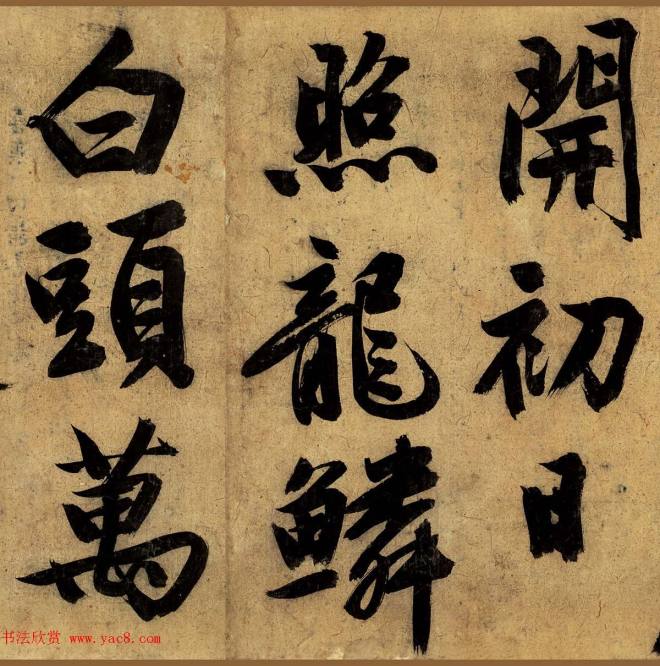 開初日
照龍鱗
白頭萬
书法欣赏 www.yac8.com